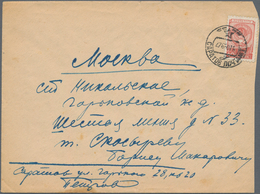 Москва
ст Никольское
Горьковской ж. д.
Шестая линия д N 33.
т. Скосыреву
Борису Макаровичу
Саратов ул. Горького 28, кв 20
Петров